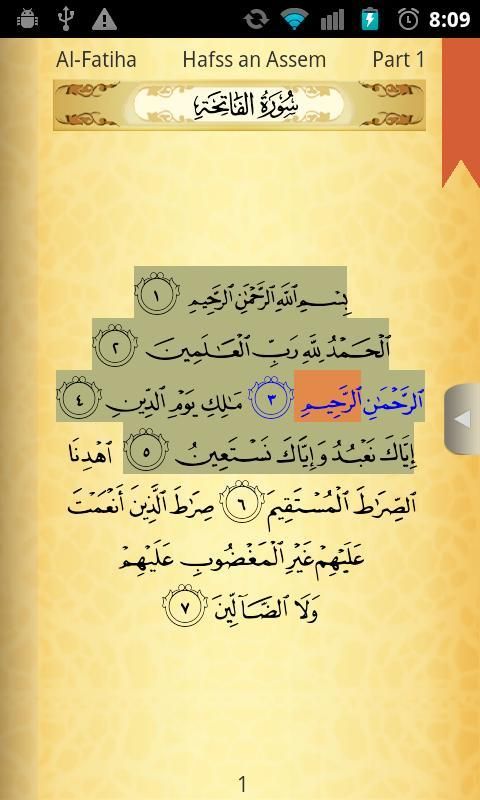 8:09
Al-Fatiha Hafss an Assem Part 1
سُورَةُ الفَاتِحَةِ
بِسْمِ ٱللَّهِ ٱلرَّحْمَٰنِ ٱلرَّحِيمِ ١
ٱلْحَمْدُ لِلَّهِ رَبِّ ٱلْعَٰلَمِينَ ٢
ٱلرَّحْمَٰنِ ٱلرَّحِيمِ ٣ مَٰلِكِ يَوْمِ ٱلدِّينِ ٤
إِيَّاكَ نَعْبُدُ وَإِيَّاكَ نَسْتَعِينُ ٥ ٱهْدِنَا
ٱلصِّرَٰطَ ٱلْمُسْتَقِيمَ ٦ صِرَٰطَ ٱلَّذِينَ أَنْعَمْتَ
عَلَيْهِمْ غَيْرِ ٱلْمَغْضُوبِ عَلَيْهِمْ
وَلَا ٱلضَّآلِّينَ ٧
1